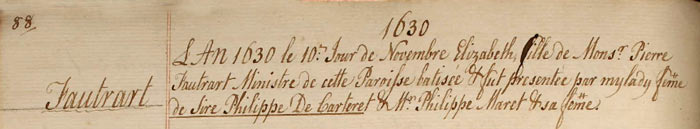 88
1630
LAN 1630 le 10.e Jour de Novembre Elizabeth, fille de Mons.r Pierre
Fautrart Ministre de cette Paroisse batisée & fut presentée par mylady feme
Fautrart
de Sire Philippe De Carteret & M.r Philippe Maret & sa feme.